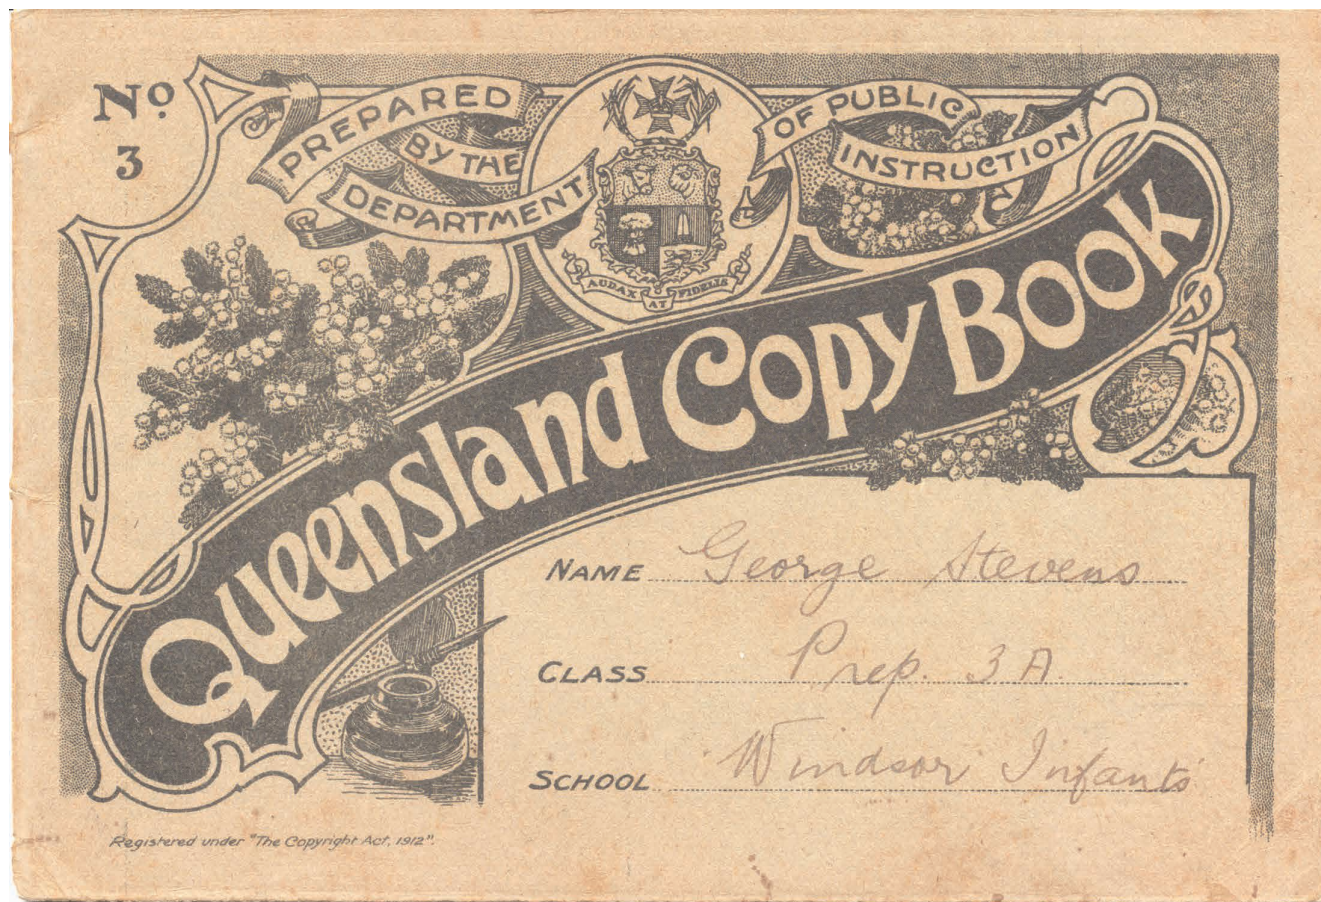 No.
3
PREPARED
BY THE
DEPARTMENT
OF PUBLIC
INSTRUCTION
AUDAX AT FIDELIS
QUEENSLAND COPY BOOK
NAME George Stevens
CLASS Prep. 3A.
SCHOOL Windsor Infants
Registered under "The Copyright Act, 1912".